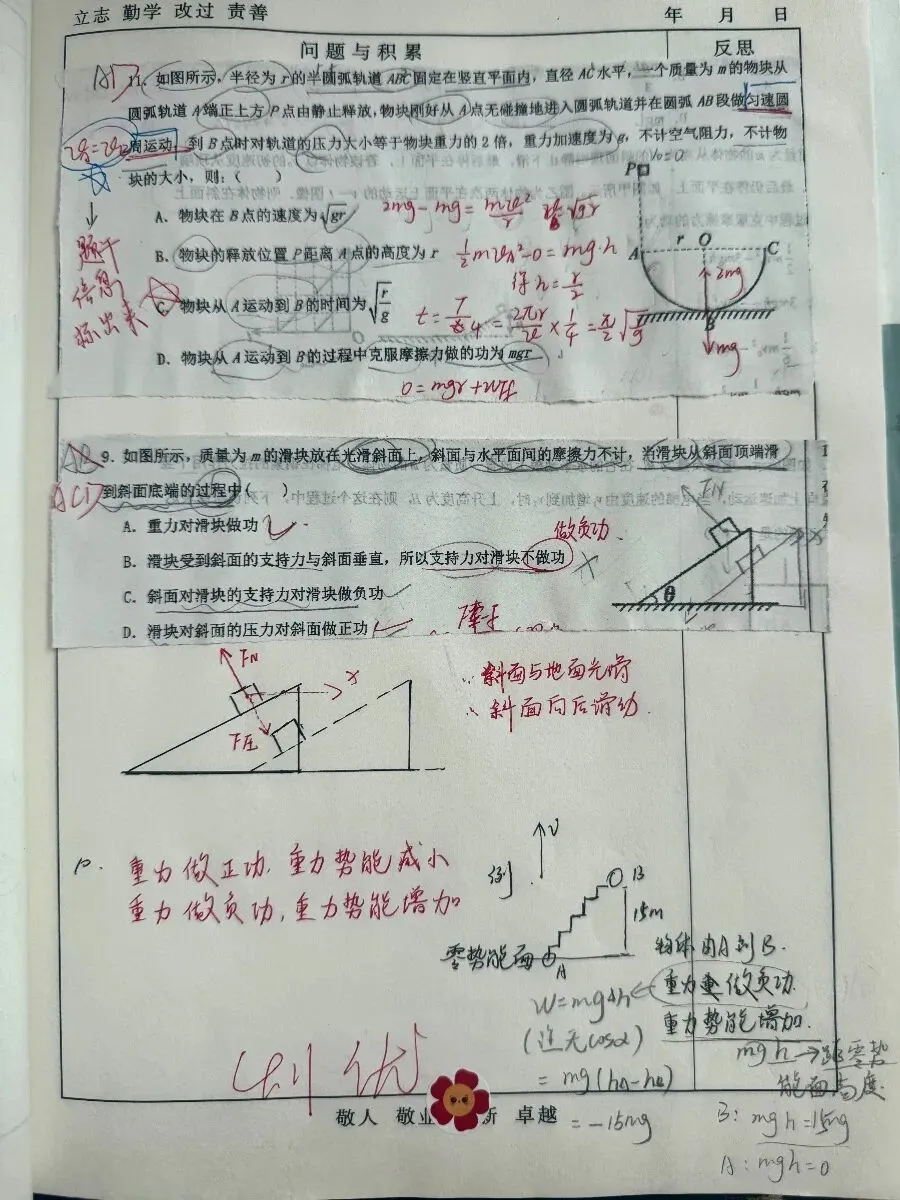 立志 勤学 改过 责善
年 月 日
问题与积累
反思
AD
11. 如图所示，半径为r的半圆弧轨道ABC固定在竖直平面内，直径AC水平，一个质量为m的物块从
圆弧轨道A端正上方P点由静止释放，物块刚好从A点无碰撞地进入圆弧轨道并在圆弧AB段做匀速圆
周运动，到B点时对轨道的压力大小等于物块重力的2倍，重力加速度为g，不计空气阻力，不计物
块的大小，则：（ ）
题干
信息
标出来
A. 物块在B点的速度为√gr
2mg-mg=
B. 物块的释放位置P距离A点的高度为r
得h=r/2
C. 物块从A运动到B的时间为√(r/g)
D. 物块从A运动到B的过程中克服摩擦力做的功为mgr
P
V₀=0
A
r
O
C
2mg
B
mg
AB
ACD
9. 如图所示，质量为m的滑块放在光滑斜面上，斜面与水平面间的摩擦力不计，当滑块从斜面顶端滑
到斜面底端的过程中（ ）
A. 重力对滑块做功
做负功
B. 滑块受到斜面的支持力与斜面垂直，所以支持力对滑块不做功
C. 斜面对滑块的支持力对滑块做负功
D. 滑块对斜面的压力对斜面做正功
FN
x
θ
FN
x
F压
∵斜面与地面光滑
∴斜面向后滑动
P.
重力做正功，重力势能减小
重力做负功，重力势能增加
例
v
B
15m
零势能面
A
物体由A到B.
重力做负功
重力势能增加.
W=mgΔh
(注无cosα)
=mg(hA-hB)
=-15mg
mgh→距零势
能面高度.
B: mgh=15mg
A: mgh=0
优
敬人 敬业 新 卓越